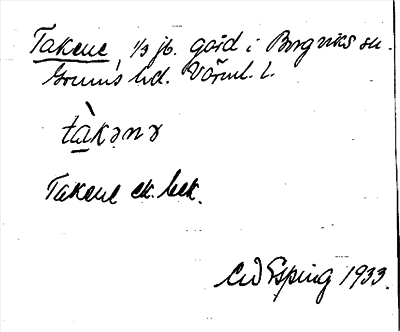 Takene, 1/3 jb. gård i Borgviks sn.
Grums hd. Värml. l.
tàkənə
Takene ek. bek.
CW Esping 1933.